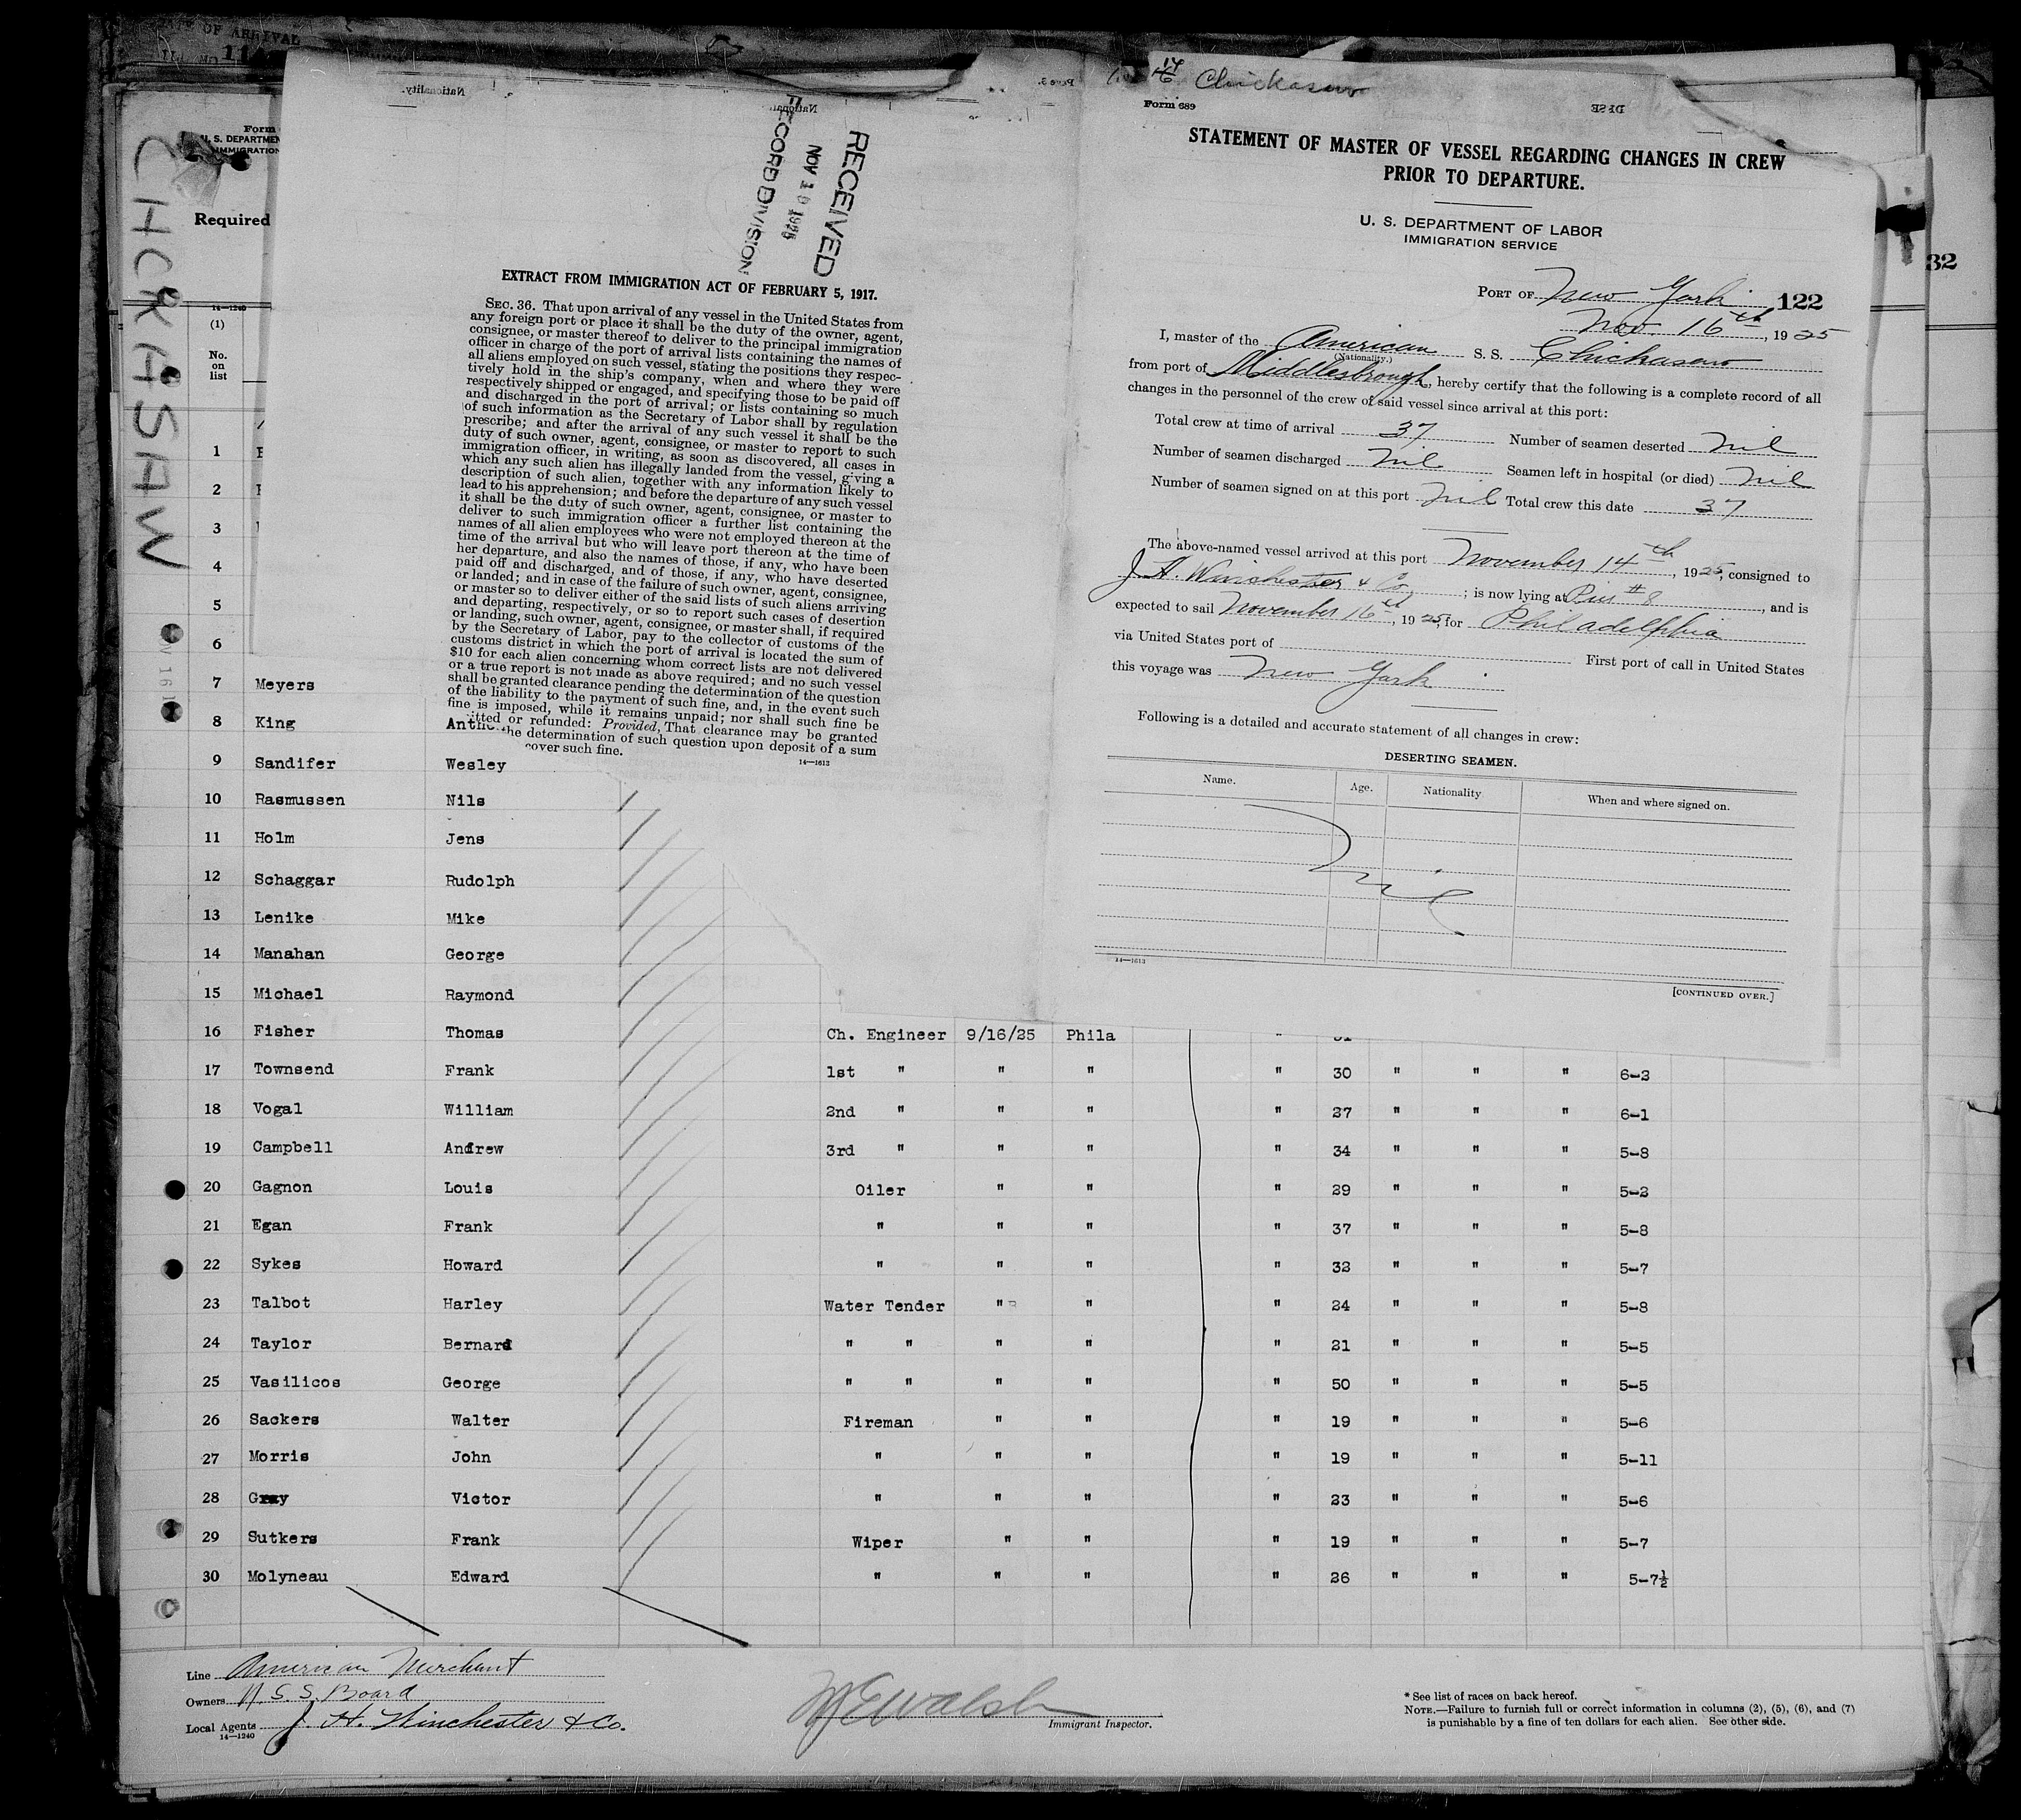 OF ARRIVAL
CHCKASAW
Form
U. S. DEPARTMEN
IMMIGRATION
Required
14—1240
(1)
No.
on
list
1
2
3
4
5
6
7 Meyers
8 King Antho
9 Sandifer Wesley
10 Rasmussen Nils
11 Holm Jens
12 Schaggar Rudolph
13 Lenike Mike
14 Manahan George
15 Michael Raymond
16 Fisher Thomas Ch. Engineer 9/16/25 Phila " 31
17 Townsend Frank 1st " " " " 30 " " " 6-2
18 Vogal William 2nd " " " " 27 " " " 6-1
19 Campbell Andrew 3rd " " " " 34 " " " 5-8
20 Gagnon Louis Oiler " " " 29 " " " 5-2
21 Egan Frank " " " " 37 " " " 5-8
22 Sykes Howard " " " " 32 " " " 5-7
23 Talbot Harley Water Tender " " " 24 " " " 5-8
24 Taylor Bernard " " " " " 21 " " " 5-5
25 Vasilicos George " " " " " 50 " " " 5-5
26 Sackers Walter Fireman " " " 19 " " " 5-6
27 Morris John " " " " 19 " " " 5-11
28 Gray Victor " " " " 23 " " " 5-6
29 Sutkers Frank Wiper " " " 19 " " " 5-7
30 Molyneau Edward " " " " 26 " " " 5-7½
Line American Merchant
Owners U.S.S. Board
Local Agents J. H. Winchester & Co.
14—1240
Immigrant Inspector.
* See list of races on back hereof.
NOTE.—Failure to furnish full or correct information in columns (2), (5), (6), and (7)
is punishable by a fine of ten dollars for each alien. See other side.
Nationality.
RECEIVED
NOV 1 1925
RECORD DIVISION
EXTRACT FROM IMMIGRATION ACT OF FEBRUARY 5, 1917.
SEC. 36. That upon arrival of any vessel in the United States from
any foreign port or place it shall be the duty of the owner, agent,
consignee, or master thereof to deliver to the principal immigration
officer in charge of the port of arrival lists containing the names of
all aliens employed on such vessel, stating the positions they respec-
tively hold in the ship's company, when and where they were
respectively shipped or engaged, and specifying those to be paid off
and discharged in the port of arrival; or lists containing so much
of such information as the Secretary of Labor shall by regulation
prescribe; and after the arrival of any such vessel it shall be the
duty of such owner, agent, consignee, or master to report to such
immigration officer, in writing, as soon as discovered, all cases in
which any such alien has illegally landed from the vessel, giving a
description of such alien, together with any information likely to
lead to his apprehension; and before the departure of any such vessel
it shall be the duty of such owner, agent, consignee, or master to
deliver to such immigration officer a further list containing the
names of all alien employees who were not employed thereon at the
time of the arrival but who will leave port thereon at the time of
her departure, and also the names of those, if any, who have been
paid off and discharged, and of those, if any, who have deserted
or landed; and in case of the failure of such owner, agent, consignee,
or master so to deliver either of the said lists of such aliens arriving
and departing, respectively, or so to report such cases of desertion
or landing, such owner, agent, consignee, or master shall, if required
by the Secretary of Labor, pay to the collector of customs of the
customs district in which the port of arrival is located the sum of
$10 for each alien concerning whom correct lists are not delivered
or a true report is not made as above required; and no such vessel
shall be granted clearance pending the determination of the question
of the liability to the payment of such fine, and, in the event such
fine is imposed, while it remains unpaid; nor shall such fine be
itted or refunded: Provided, That clearance may be granted
he determination of such question upon deposit of a sum
cover such fine.
14—1613
Chickasaw
Form 689
STATEMENT OF MASTER OF VESSEL REGARDING CHANGES IN CREW
PRIOR TO DEPARTURE.
U. S. DEPARTMENT OF LABOR
IMMIGRATION SERVICE
PORT OF New York 122
Nov 16th, 1925
I, master of the American S. S. Chickasaw
(Nationality.)
from port of Middlesbrough, hereby certify that the following is a complete record of all
changes in the personnel of the crew of said vessel since arrival at this port:
Total crew at time of arrival 37 Number of seamen deserted Nil
Number of seamen discharged Nil Seamen left in hospital (or died) Nil
Number of seamen signed on at this port Nil Total crew this date 37
The above-named vessel arrived at this port November 14th, 1925, consigned to
J. H. Winchester & Co; is now lying at Pier #8, and is
expected to sail November 16th, 1925, for Philadelphia
via United States port of First port of call in United States
this voyage was New York.
Following is a detailed and accurate statement of all changes in crew:
DESERTING SEAMEN.
Name. Age. Nationality When and where signed on.
Nil
14—1613
[CONTINUED OVER.]
32